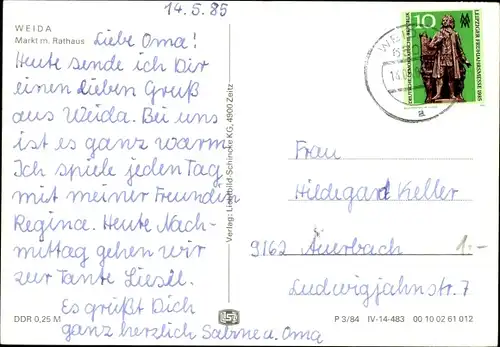 14.5.85
WEIDA
Markt m. Rathaus
Liebe Oma!
Heute sende ich Dir
einen lieben Gruß
aus Weida. Bei uns
ist es ganz warm.
Ich spiele jeden Tag
mit meiner Freundin
Regina. Heute Nach-
mittag gehen wir
zur Tante Liesel.
Es grüßt Dich
ganz herzlich Sabine u. Oma
DDR 0,25 M
Verlag: Lichtbild-Schincke KG, 4900 Zeitz
10
LEIPZIGER FRÜHJAHRSMESSE 1985
DEUTSCHE DEMOKRATISCHE REPUBLIK
WEI
14.
a
Frau
Hildegard Keller
9162 Auerbach
1.-
Ludwigjahnstr. 7
P 3/84 IV-14-483 00 10 02 61 012